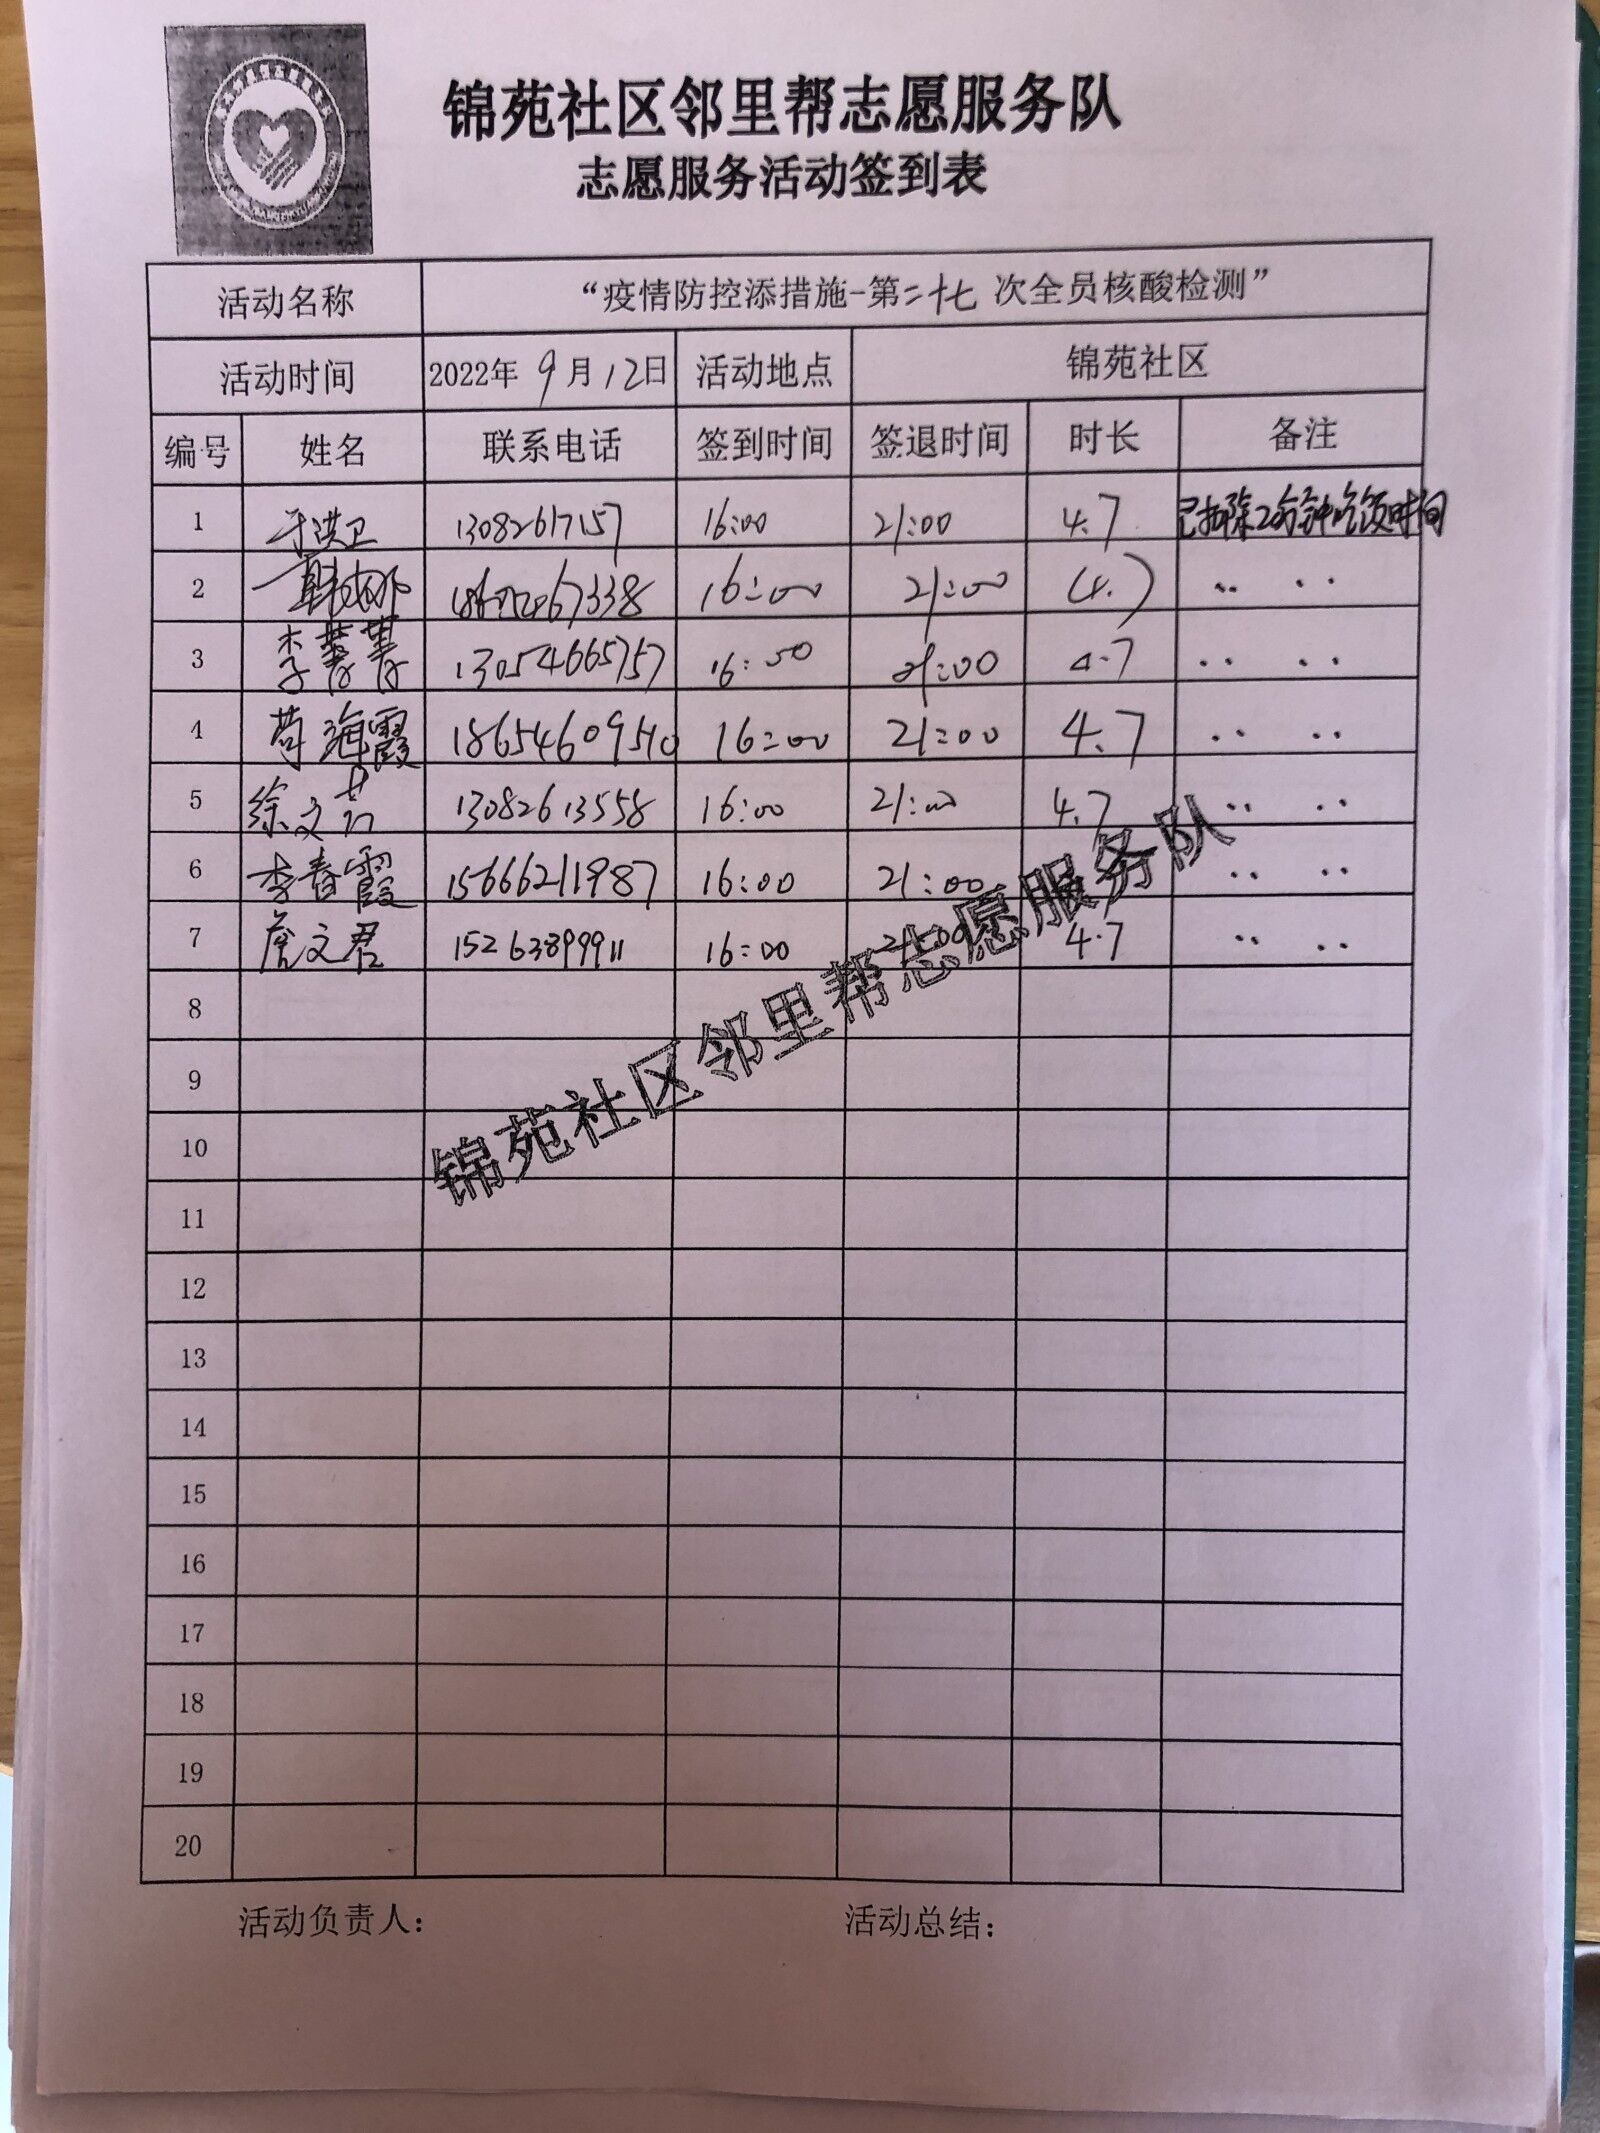 锦苑社区邻里帮志愿服务队
志愿服务活动签到表
活动名称 “疫情防控添措施-第二十七次全员核酸检测”
活动时间 2022年9月12日 活动地点 锦苑社区
编号 姓名 联系电话 签到时间 签退时间 时长 备注
1 于洪卫 13082617157 16:00 21:00 4.7 已扣除20分钟吃饭时间
2 16:00 21:00 (4.7) ‥ ‥
3 李菁菁 13054665757 16:00 21:00 4.7 ‥ ‥
4 苟海霞 18654609510 16:00 21:00 4.7 ‥ ‥
5 徐文芸 13082613558 16:00 21:00 4.7 ‥ ‥
6 李春霞 15666211987 16:00 21:00 4.7 ‥ ‥
7 詹文君 15263899911 16:00 21:00 4.7 ‥ ‥
锦苑社区邻里帮志愿服务队
8
9
10
11
12
13
14
15
16
17
18
19
20
活动负责人： 活动总结：